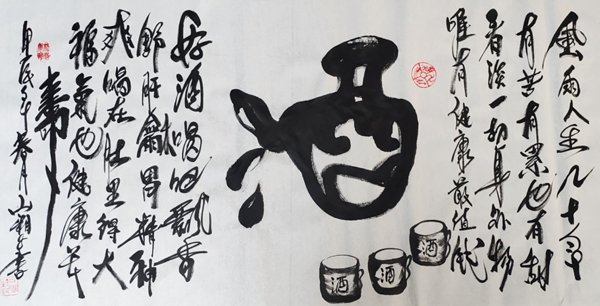 風雨人生几十年
有苦有累也有甜
看淡一切身外物
唯有健康最值钱
酒
酒
酒
酒
好酒喝
飄香
精神
爽喝在肚里得大
福氣也健康
寿
年春月山